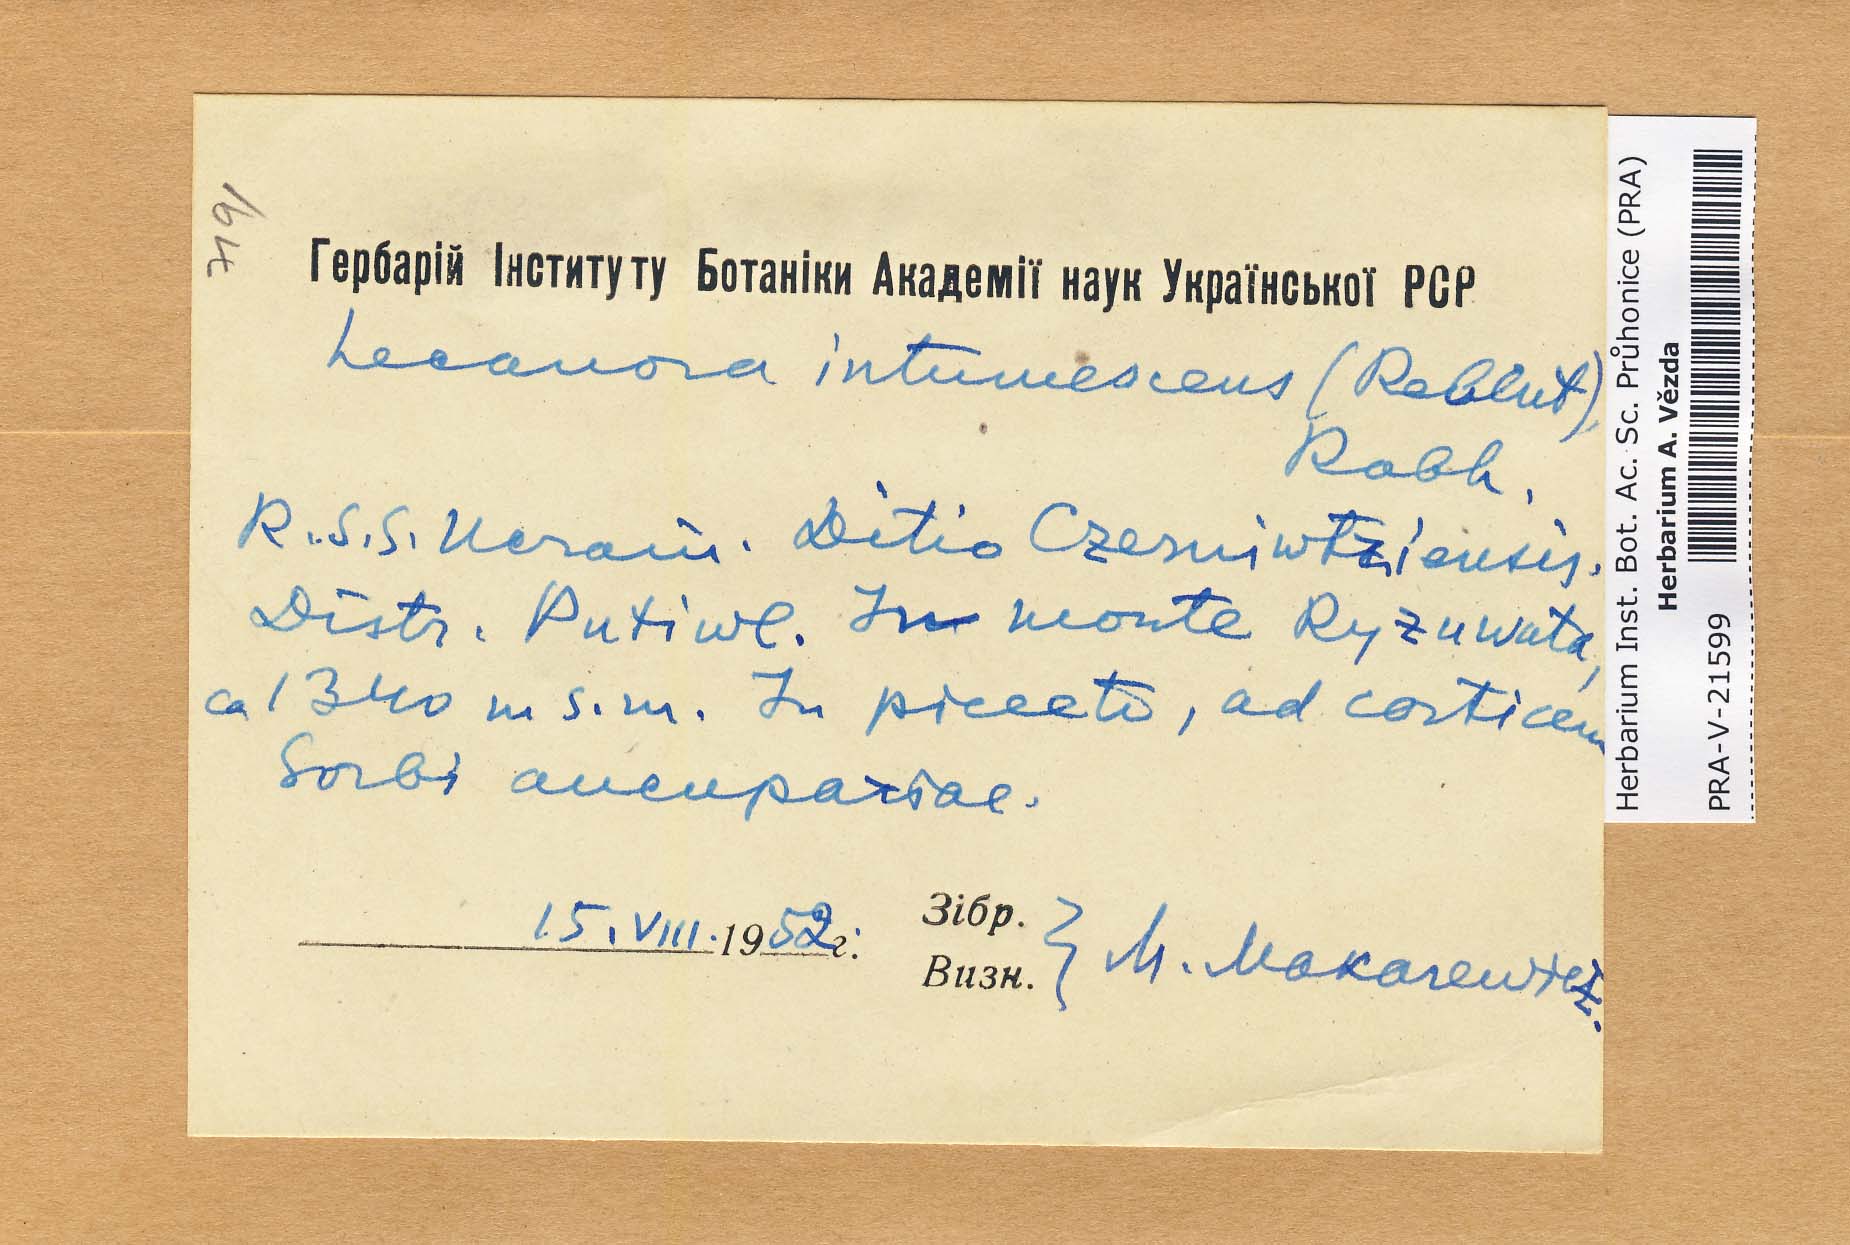 719/
Гербарій Інституту Ботаніки Академії наук Української РСР
Lecanora intumescens (Rebent)
Rabh.
R.S.S. Ucrain. Ditio Czerniwtziensis.
Distr. Putiwl. In monte Ryzuwata,
ca 1340 m s.m. In piceeto, ad corticem
Sorbi aucupariae.
15.VIII.1952г.
Зібр.
Визн. } M. Makarewicz.
Herbarium Inst. Bot. Ac. Sc. Průhonice (PRA)
Herbarium A. Vězda
PRA-V-21599